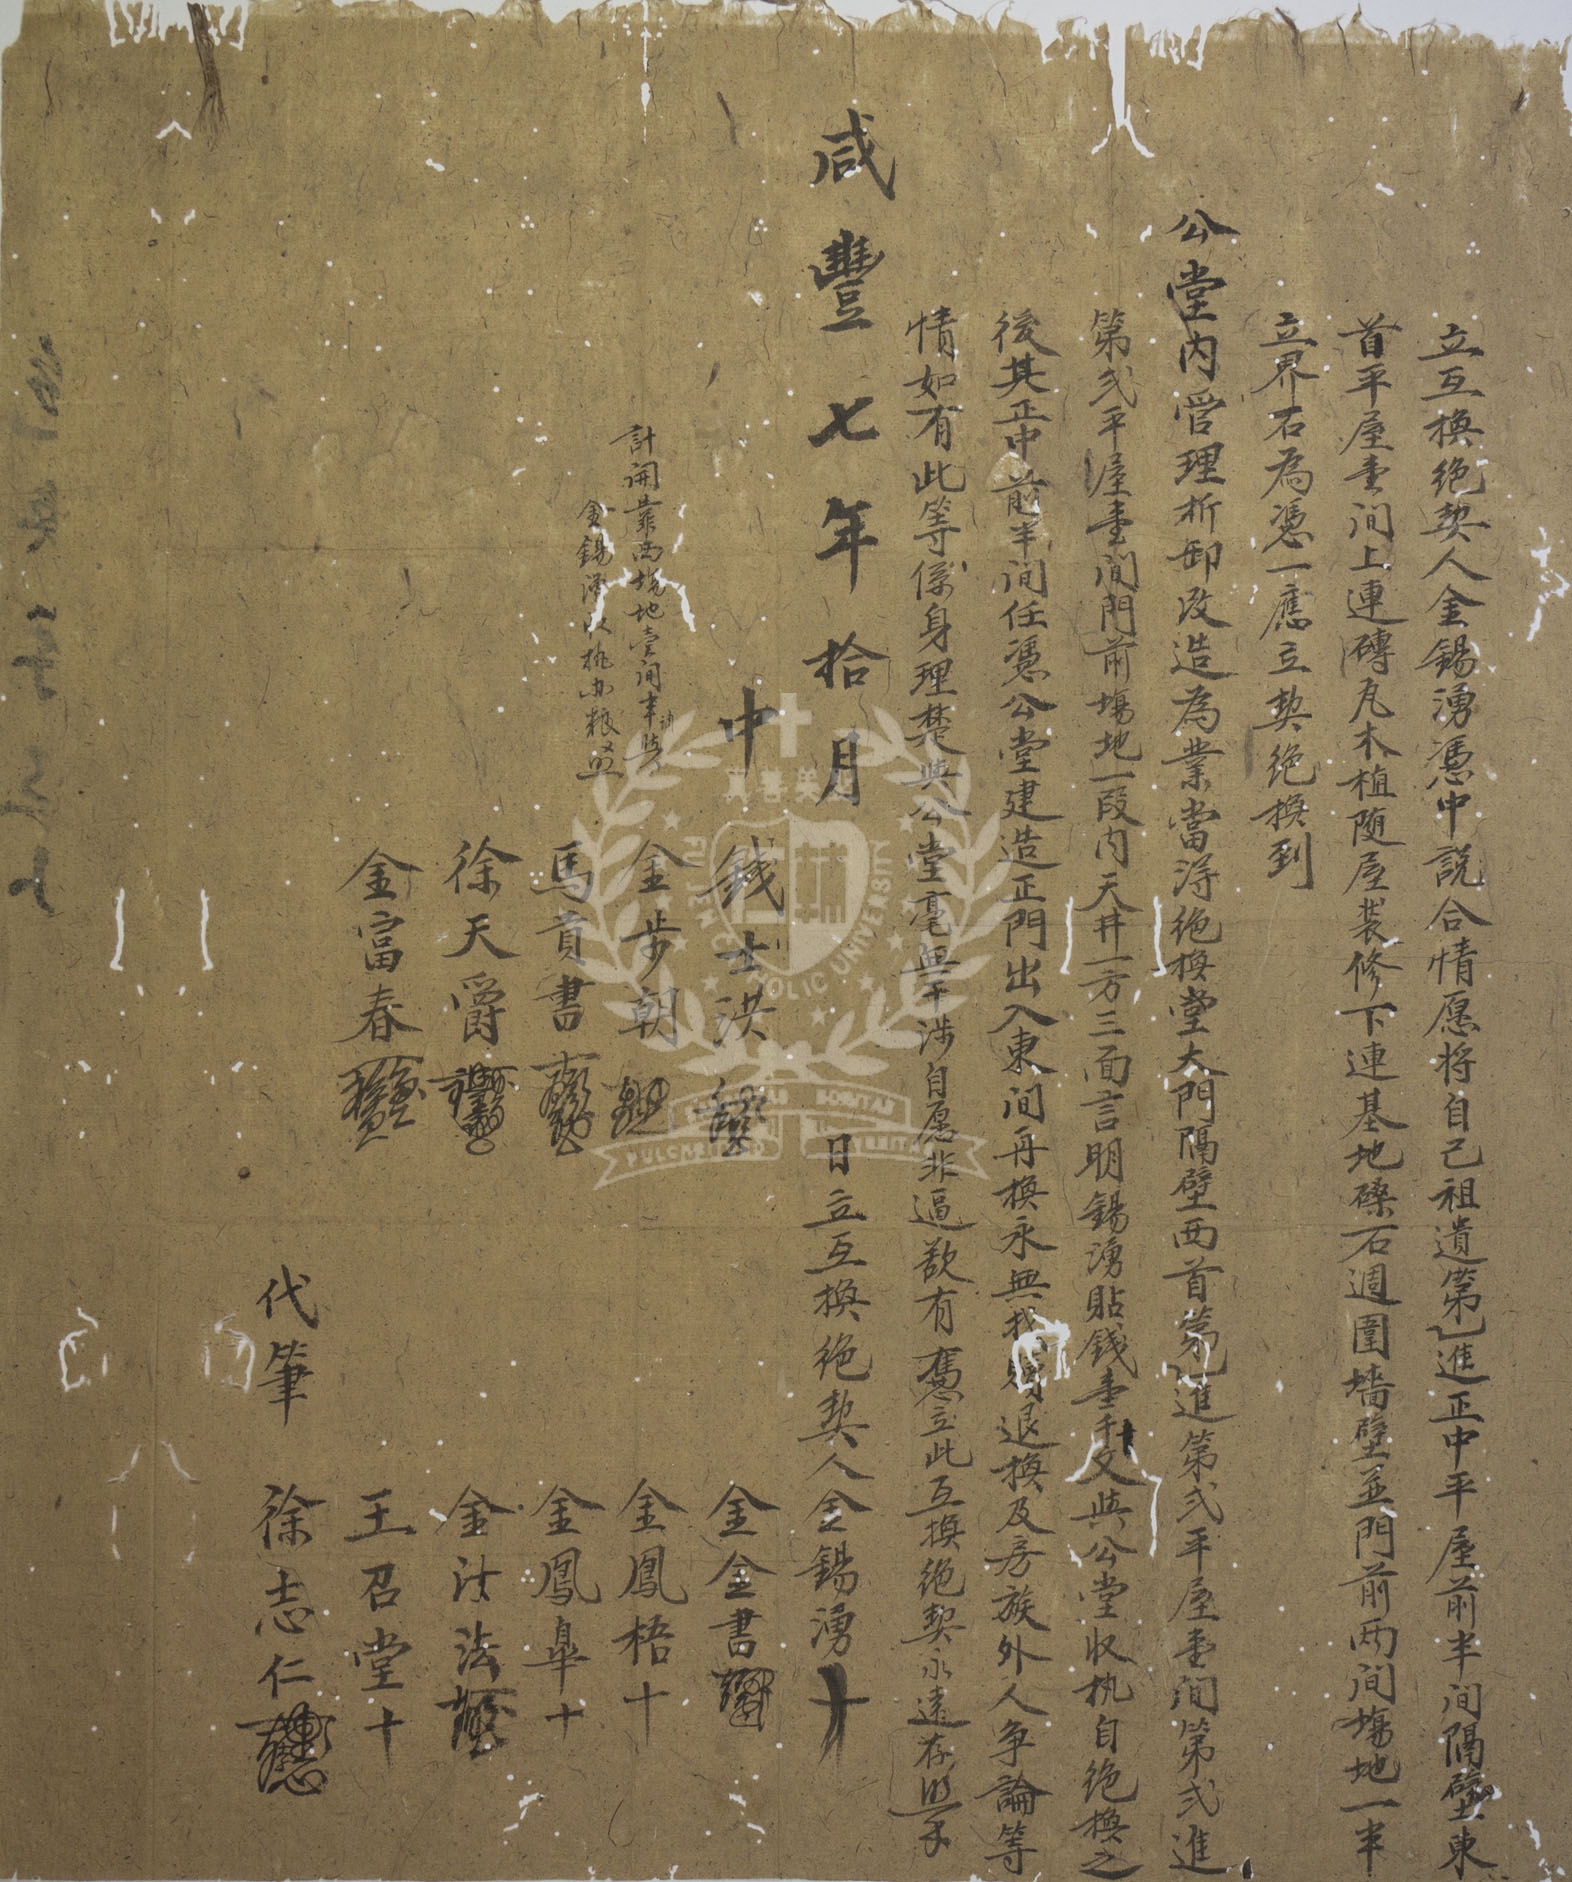 立互換绝契人金錫湧憑中説合情愿将自己祖遺第乙進正中平屋前半间隔壁東
首平屋壹间上連磚瓦木植随屋装修下連基地磉石週圍墻壁並門前両间塲地一半
立界石為憑一應立契绝換到
公堂内管理拆卸改造為業當淂绝換堂大門隔壁西首第乙進第弍平屋壹间第弍進
第弍平屋壹间門前塲地一段内天井一方三面言明錫湧貼錢壹千文與公堂収执自绝換之
後其正中前半间任憑公堂建造正門出入東间再換永無找贖退換及房族外人争論等
情如有此等係身理楚與公堂毫無干涉自愿非逼欲有憑立此互換绝契永遠存照
咸豐七年拾月 日立互換绝契人金錫湧十
計開靠西塲地壹间半
金錫湧以抵办粮
中 錢士洪
金步朝
馬貢書
徐天爵
金富春
金金書
金鳳梧十
金鳳臯十
金法
王召堂十
代筆 徐志仁